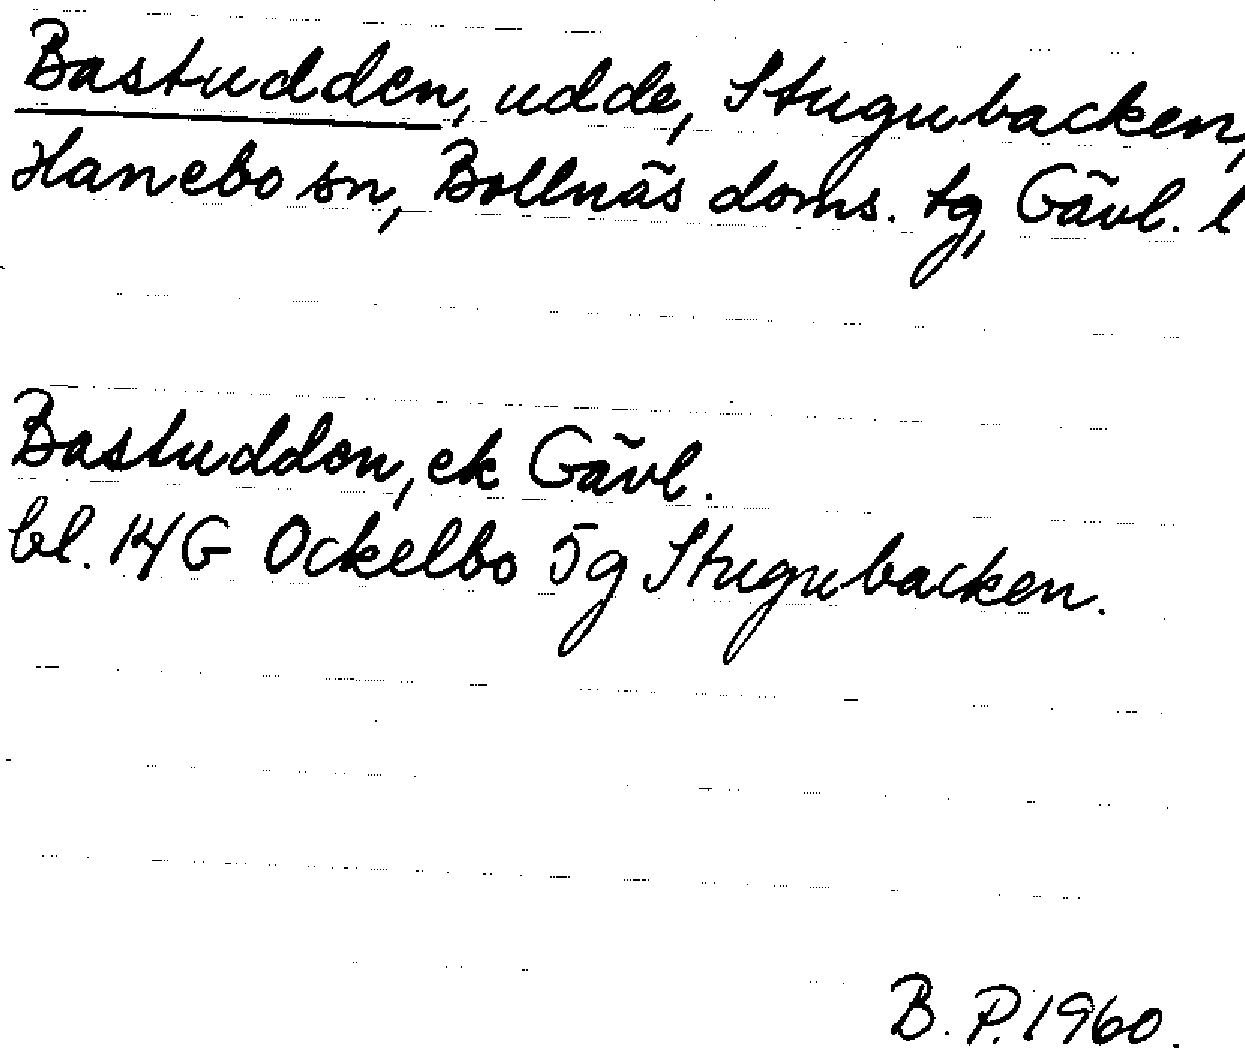 Bastudden, udde, Stugubacken,
Hanebo sn, Bollnäs doms. tg, Gävl. l
Bastudden, ek Gävl.
bl. 14 G Ockelbo 5g Stugubacken.
B. P. 1960.